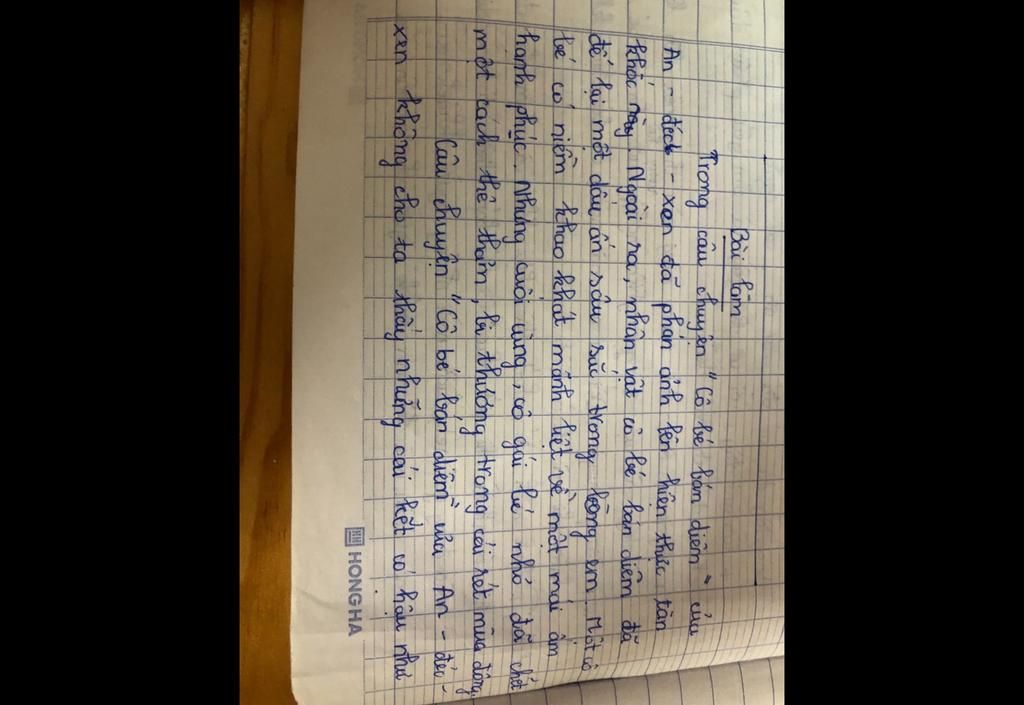 Bài làm
Trong câu chuyện "Cô bé bán diêm" của
An - đéc - xen đã phản ánh lên hiện thực tàn
khốc này. Ngoài ra, nhân vật cô bé bán diêm đã
để lại một dấu ấn sâu sắc trong lòng em. Một cô
bé có niềm khao khát mãnh liệt về một mái ấm
hạnh phúc. Nhưng cuối cùng, cô gái bé nhỏ đã chết
một cách thê thảm, bi thương trong cái rét mùa đông.
Câu chuyện "Cô bé bán diêm" của An - đéc -
xen không cho ta thấy những cái kết có hậu như
HONG HA